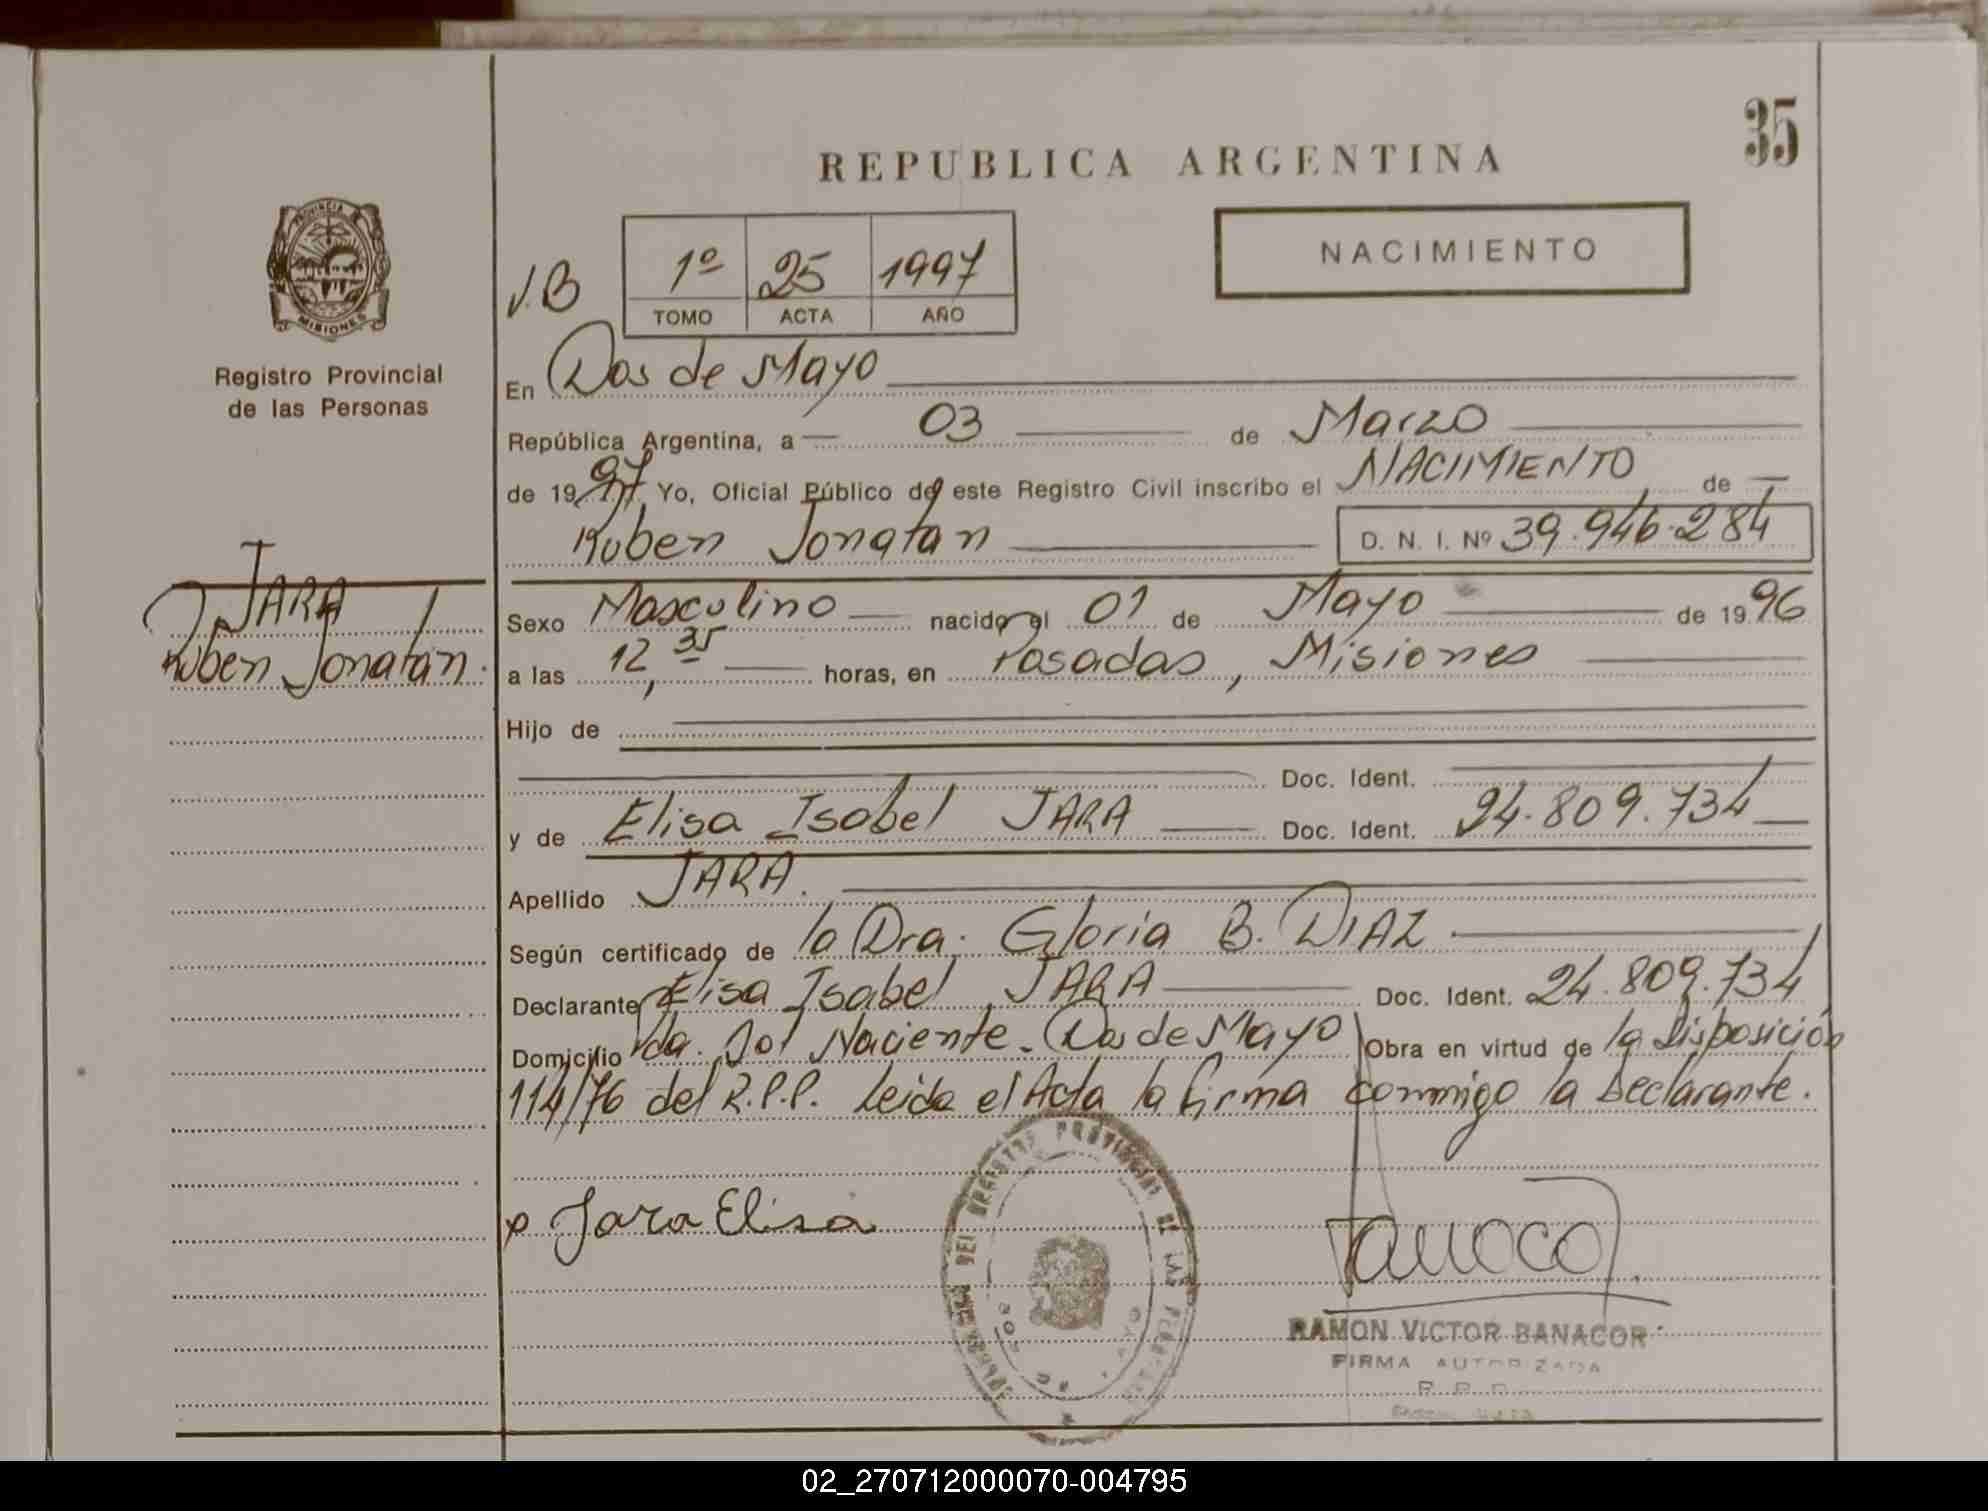 35
REPUBLICA ARGENTINA
NACIMIENTO
PROVINCIA DE
MISIONES
Registro Provincial
de las Personas
V.B
1º 25 1997
TOMO ACTA AÑO
En Dos de Mayo
República Argentina, a 03 de Marzo
de 1997. Yo, Oficial Público de este Registro Civil inscribo el NACIMIENTO de
Ruben Jonatan D. N. I. Nº 39.946.284
JARA
Ruben Jonatan.
Sexo Masculino nacido el 01 de Mayo de 1996
a las 12,35 horas, en Posadas, Misiones
Hijo de
Doc. Ident.
y de Elisa Isabel JARA Doc. Ident. 24.809.734
Apellido JARA.
Según certificado de la Dra. Gloria B. DIAZ
Declarante Elisa Isabel JARA Doc. Ident. 24.809.734
Domicilio Vda. Sol Naciente. Dos de Mayo Obra en virtud de la Disposición
114/76 del R.P.P. Leida el Acta la firma conmigo la Declarante.
Jara Elisa
REGISTRO PROVINCIAL DE LAS
RAMON VICTOR BANACOR
FIRMA AUTORIZADA
02_270712000070-004795